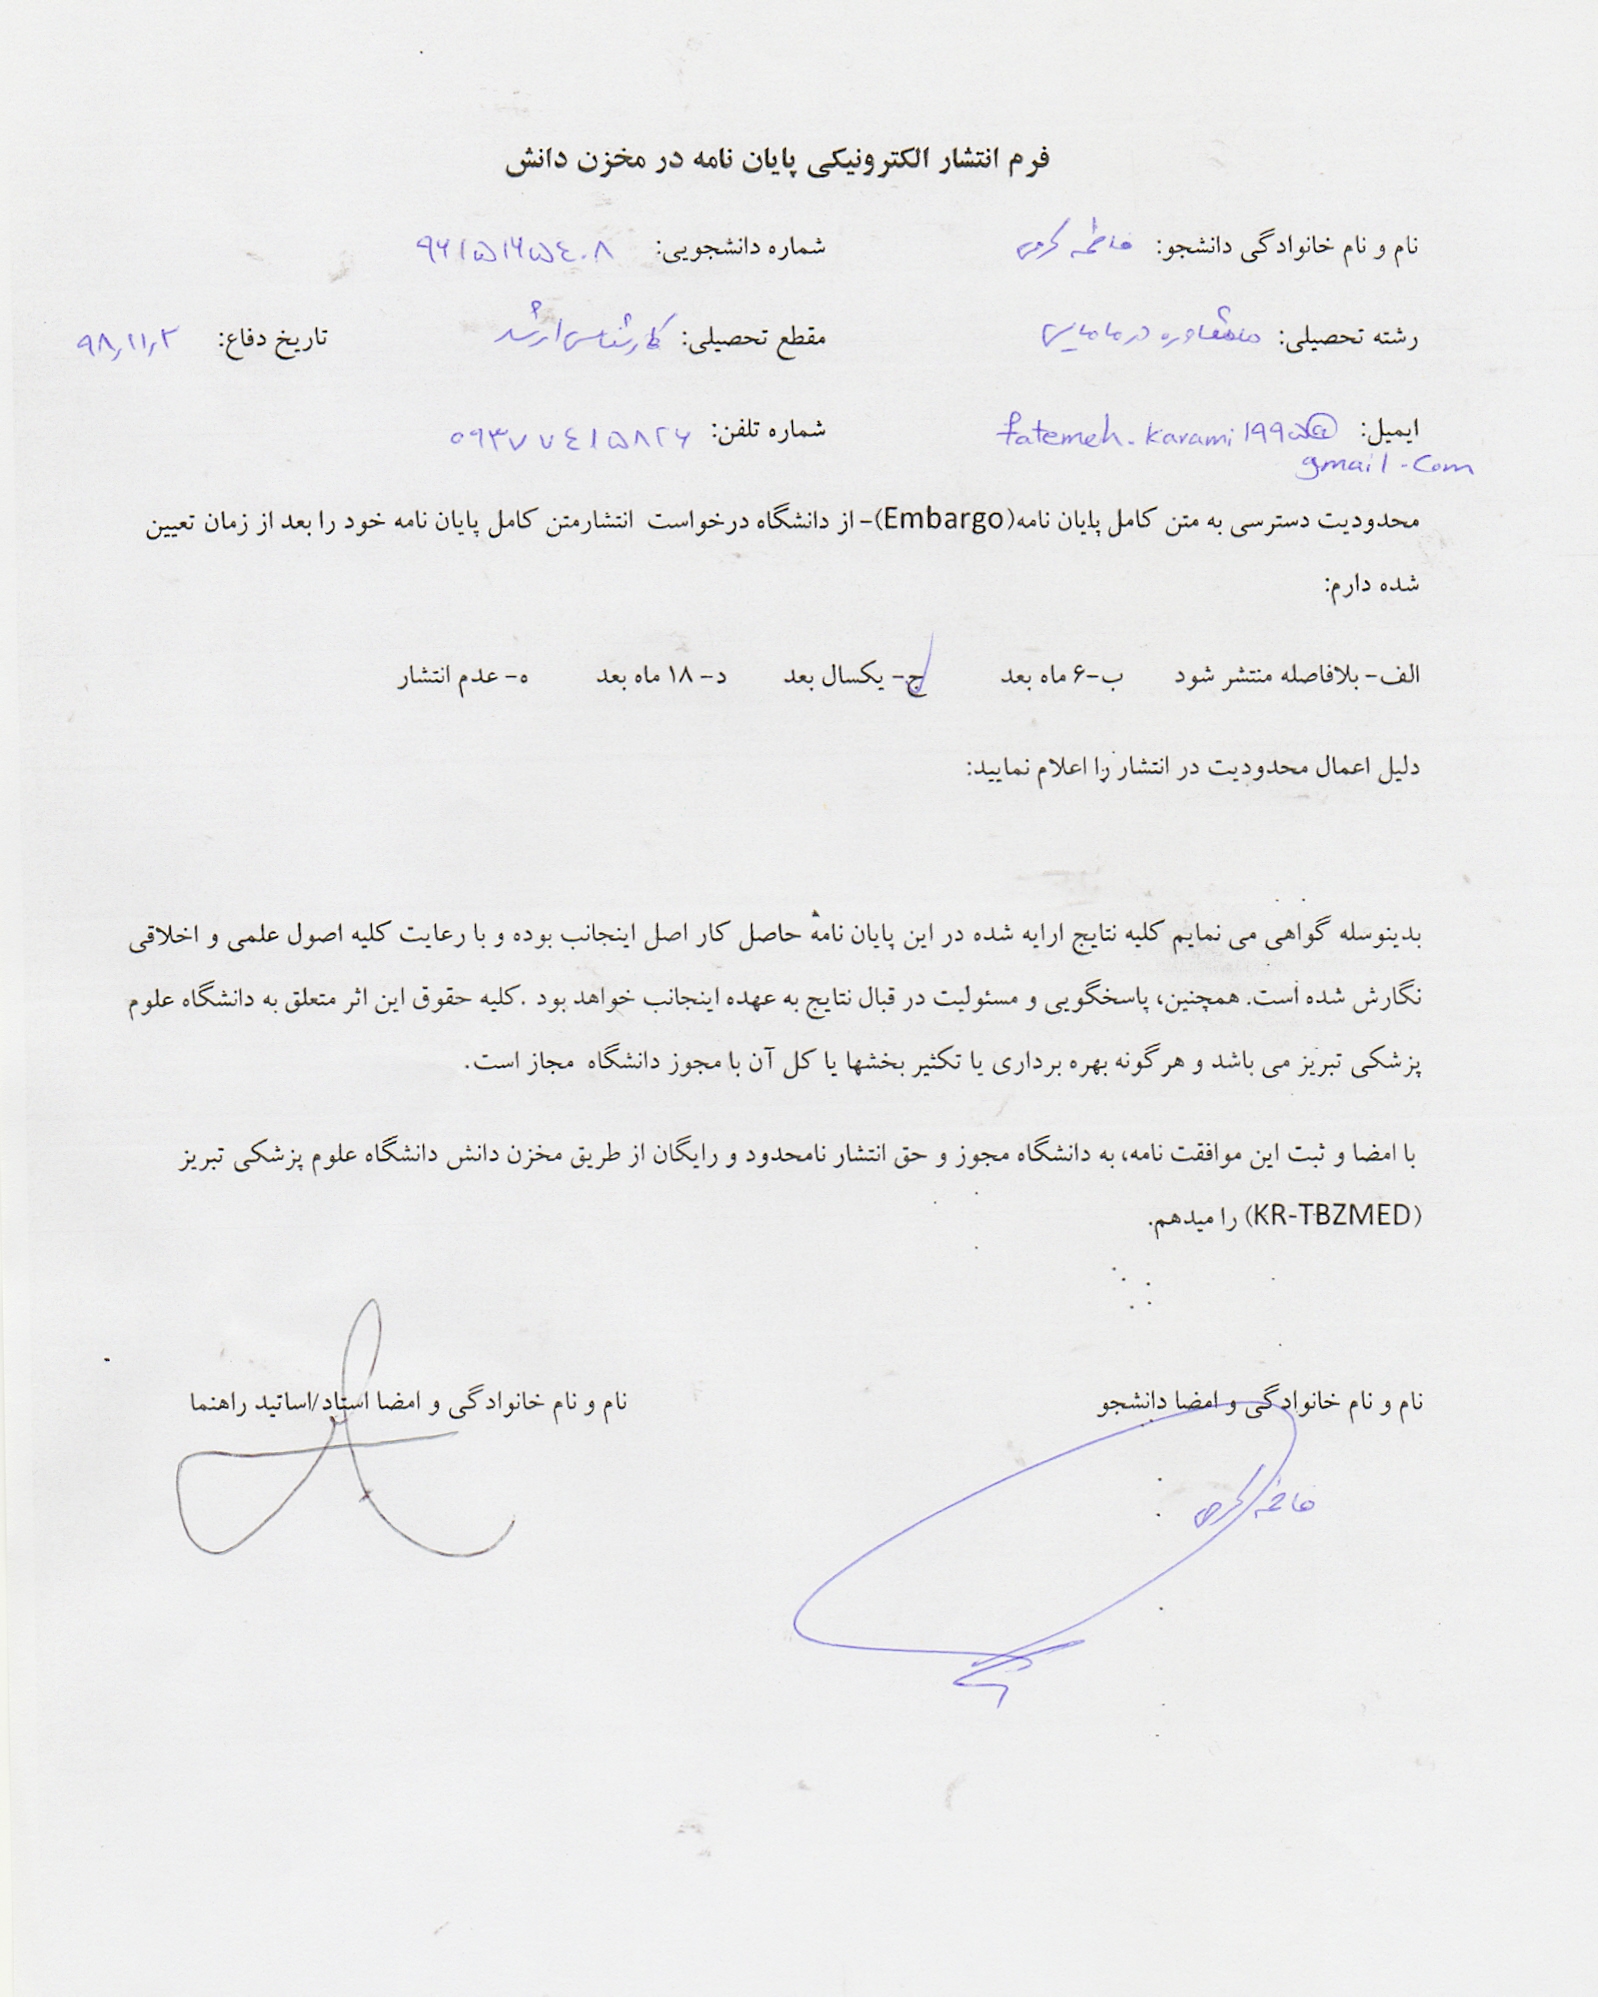 فرم انتشار الکترونیکی پایان نامه در مخزن دانش
نام و نام خانوادگی دانشجو: فاطمه کرمی شماره دانشجویی: ۹۶۱۵۱۶۵۴۰۸
رشته تحصیلی: مشاوره در مامایی مقطع تحصیلی: کارشناسی ارشد تاریخ دفاع: ۹۸,۱۱,۲
ایمیل: fatemeh.karami199۵@ شماره تلفن: ۰۹۳۷۷۴۱۵۸۲۶
gmail.com
محدودیت دسترسی به متن کامل پایان نامه(Embargo)- از دانشگاه درخواست انتشارمتن کامل پایان نامه خود را بعد از زمان تعیین
شده دارم:
الف- بلافاصله منتشر شود ب-۶ ماه بعد ج- یکسال بعد د- ۱۸ ماه بعد ه- عدم انتشار
دلیل اعمال محدودیت در انتشار را اعلام نمایید:
بدینوسله گواهی می نمایم کلیه نتایج ارایه شده در این پایان نامه حاصل کار اصل اینجانب بوده و با رعایت کلیه اصول علمی و اخلاقی
نگارش شده است. همچنین، پاسخگویی و مسئولیت در قبال نتایج به عهده اینجانب خواهد بود .کلیه حقوق این اثر متعلق به دانشگاه علوم
پزشکی تبریز می باشد و هرگونه بهره برداری یا تکثیر بخشها یا کل آن با مجوز دانشگاه مجاز است.
با امضا و ثبت این موافقت نامه، به دانشگاه مجوز و حق انتشار نامحدود و رایگان از طریق مخزن دانش دانشگاه علوم پزشکی تبریز
(KR-TBZMED) را میدهم.
نام و نام خانوادگی و امضا دانشجو نام و نام خانوادگی و امضا استاد/اساتید راهنما
فاطمه کرمی